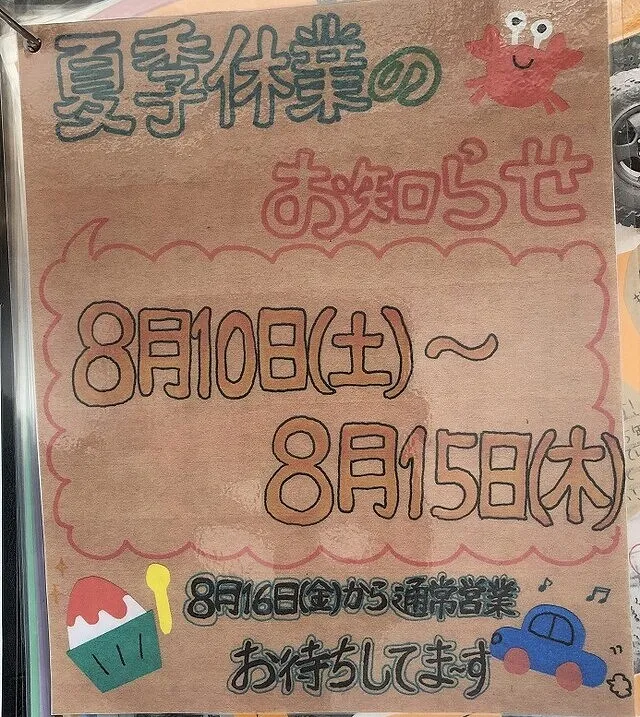 夏季休業の
お知らせ
8月10日(土)～
8月15日(木)
8月16日(金)から通常営業
お待ちしてま～す